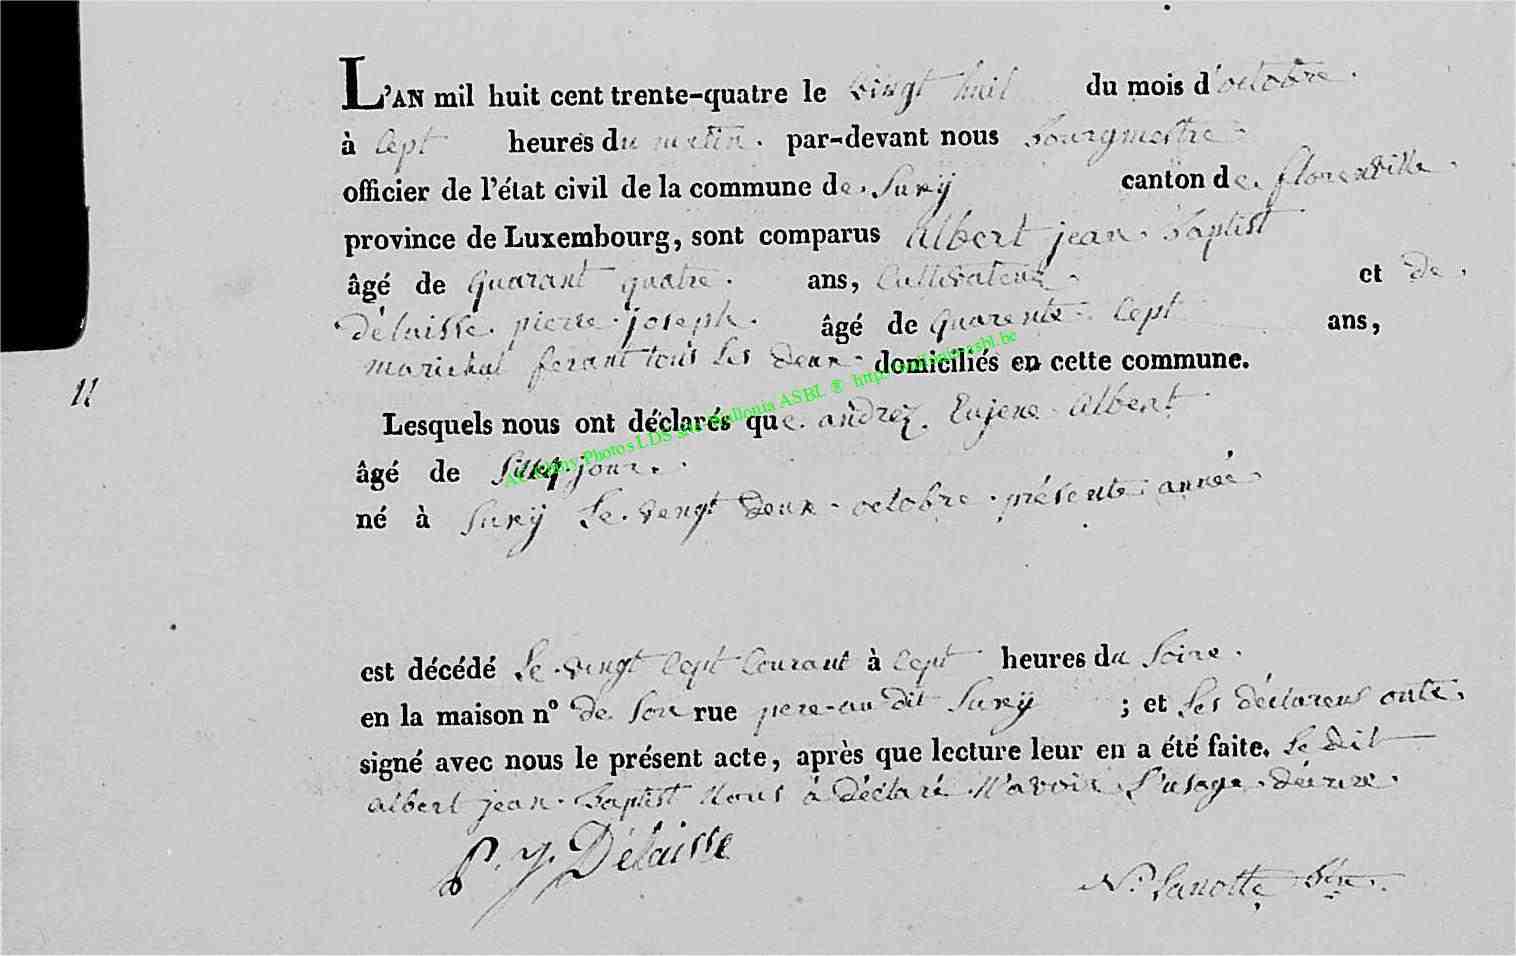 L'AN mil huit cent trente-quatre le vingt huit du mois d'octobre.
à sept heures du matin. par-devant nous Bourgmestre
officier de l'état civil de la commune de. Suxÿ canton de. florenville.
province de Luxembourg, sont comparus Albert jean. Baptist
âgé de quarant quatre. ans, Cultivateur. et de.
délaisse. pierre. joseph. âgé de quarente. sept ans,
marichal ferant tous les deux domiciliés en cette commune.
11
Lesquels nous ont déclarés que. andrez. Eujene. albert
âgé de jour.
né à Suxÿ le. vengt deux. octobre. présente année
est décédé le. vingt sept courant à sept heures du soire.
en la maison nº de son rue pere-au dit Suxÿ ; et les déclarens onte.
signé avec nous le présent acte, après que lecture leur en a été faite. le dit
albert jean. baptist nous a déclaré n'avoir l'usage décrire.
P. J. Délaisse
N. Lanotte